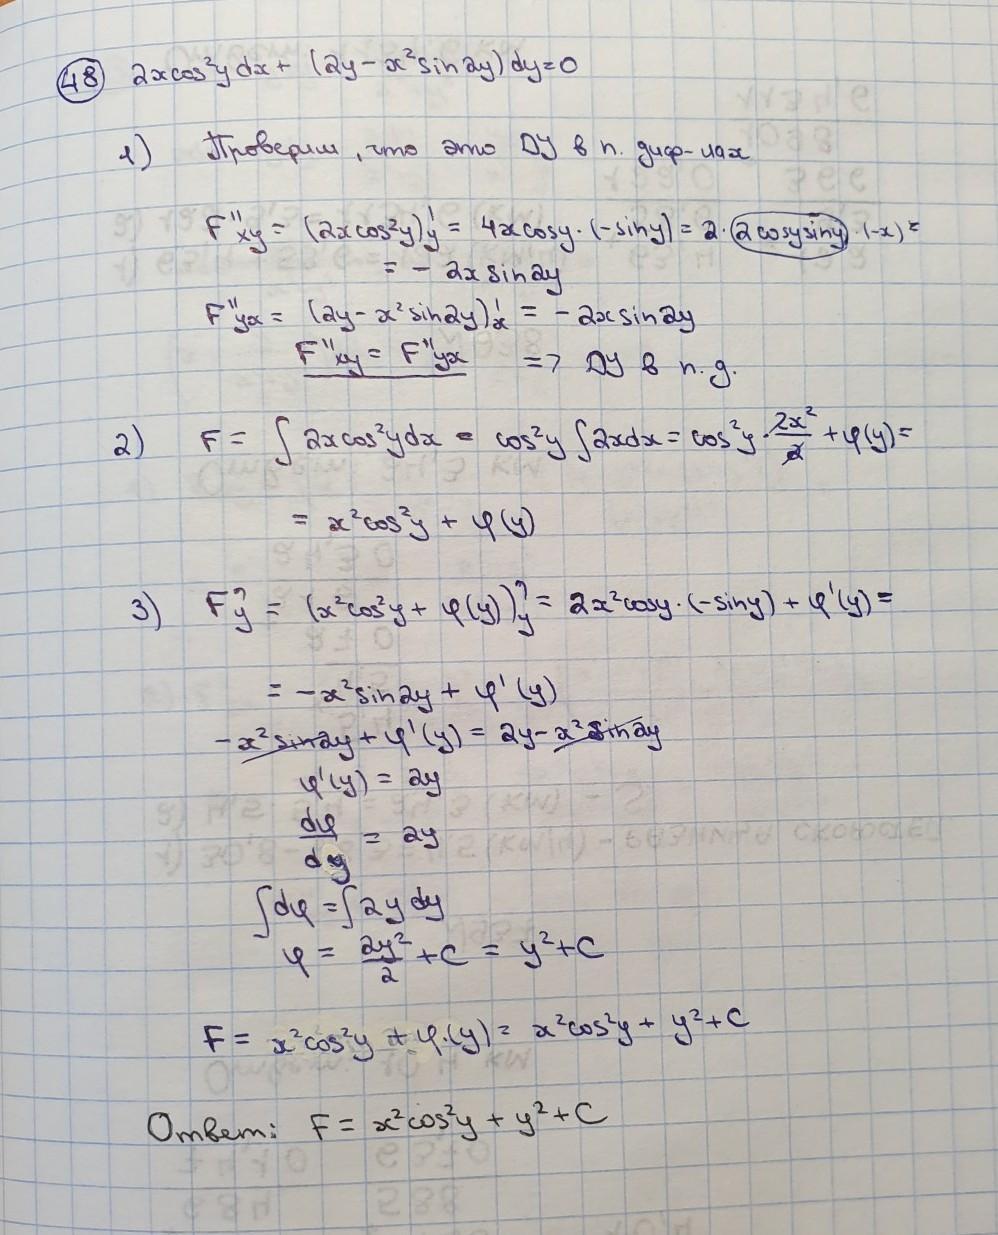 48 2xcos²y dx + (2y - x²sin2y) dy = 0
1) Проверим, что это ДУ в п. диф-лах
F''xy = (2xcos²y)'y = 4xcosy·(-siny) = 2·(2cosysiny)·(-x) =
= - 2x sin2y
F''yx = (2y - x²sin2y)'x = - 2xsin2y
F''xy = F''yx => ДУ в п.д.
2) F = ∫ 2xcos²ydx = cos²y ∫2xdx = cos²y · 2x²/2 + φ(y) =
= x²cos²y + φ(y)
3) F'y = (x²cos²y + φ(y))'y = 2x²cosy·(-siny) + φ'(y) =
= -x²sin2y + φ'(y)
-x²sin2y + φ'(y) = 2y - x²sin2y
φ'(y) = 2y
dφ/dy = 2y
∫dφ = ∫2y dy
φ = 2y²/2 + C = y² + C
F = x²cos²y + φ(y) = x²cos²y + y² + C
Ответ: F = x²cos²y + y² + C